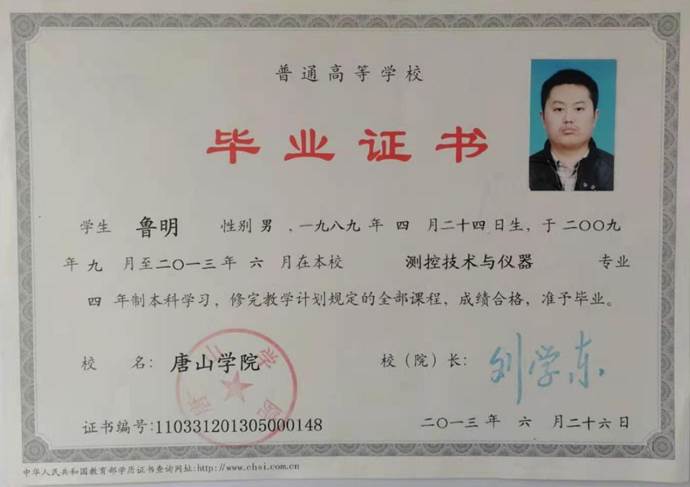 普通高等学校
毕业证书
学生 鲁明 性别 男 ，一九八九 年 四 月二十四日生，于 二〇〇九
年 九 月至二〇一三年 六 月在本校 测控技术与仪器 专业
四 年制本科学习，修完教学计划规定的全部课程，成绩合格，准予毕业。
校 名：唐山学院 校（院）长：刘学东
证书编号：110331201305000148 二〇一三年 六 月二十六日
中华人民共和国教育部学历证书查询网址：http://www.chsi.com.cn